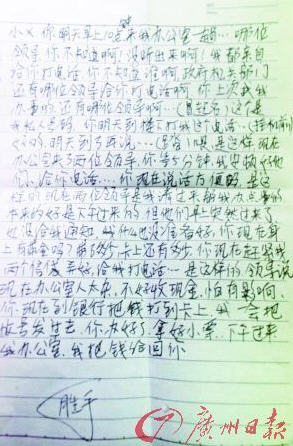 小×你明天早上10点来我办公室一趟…哪位
领导你不知道啊?没听出来啊!我都亲自
给你打电话,你不知道谁啊,政府机关部门
还有哪位领导给你打电话啊,你上次我
办事啦,还有哪位领导啊…(冒充名)这个是
我私人号码,你明天到楼下打我这个电话…(挂机前)
…明天到了再说…(是否)1喂,是这样,现在
办公室来了两位领导,你等5分钟,我安排好他
们,给你电话…你现在说话方便吗,是这
样的,现在两位领导是我请过来帮我办点事的
本来约好是下午过来的,但他们早上突然过来了
也没给我通知,她什么也没准备好,你现在身
上有现金吗?有多少,卡上还有多少,你现在赶紧找
两个信封装好,给我打电话…是这样的,领导说
现在办公室人太杂,不好收现金,怕有影响,
你现在到银行把钱打到卡上,我一会把
帐号发过去,你办好了,拿好小票,下午过来
我办公室,我把钱给回你
胜手
廣州日報